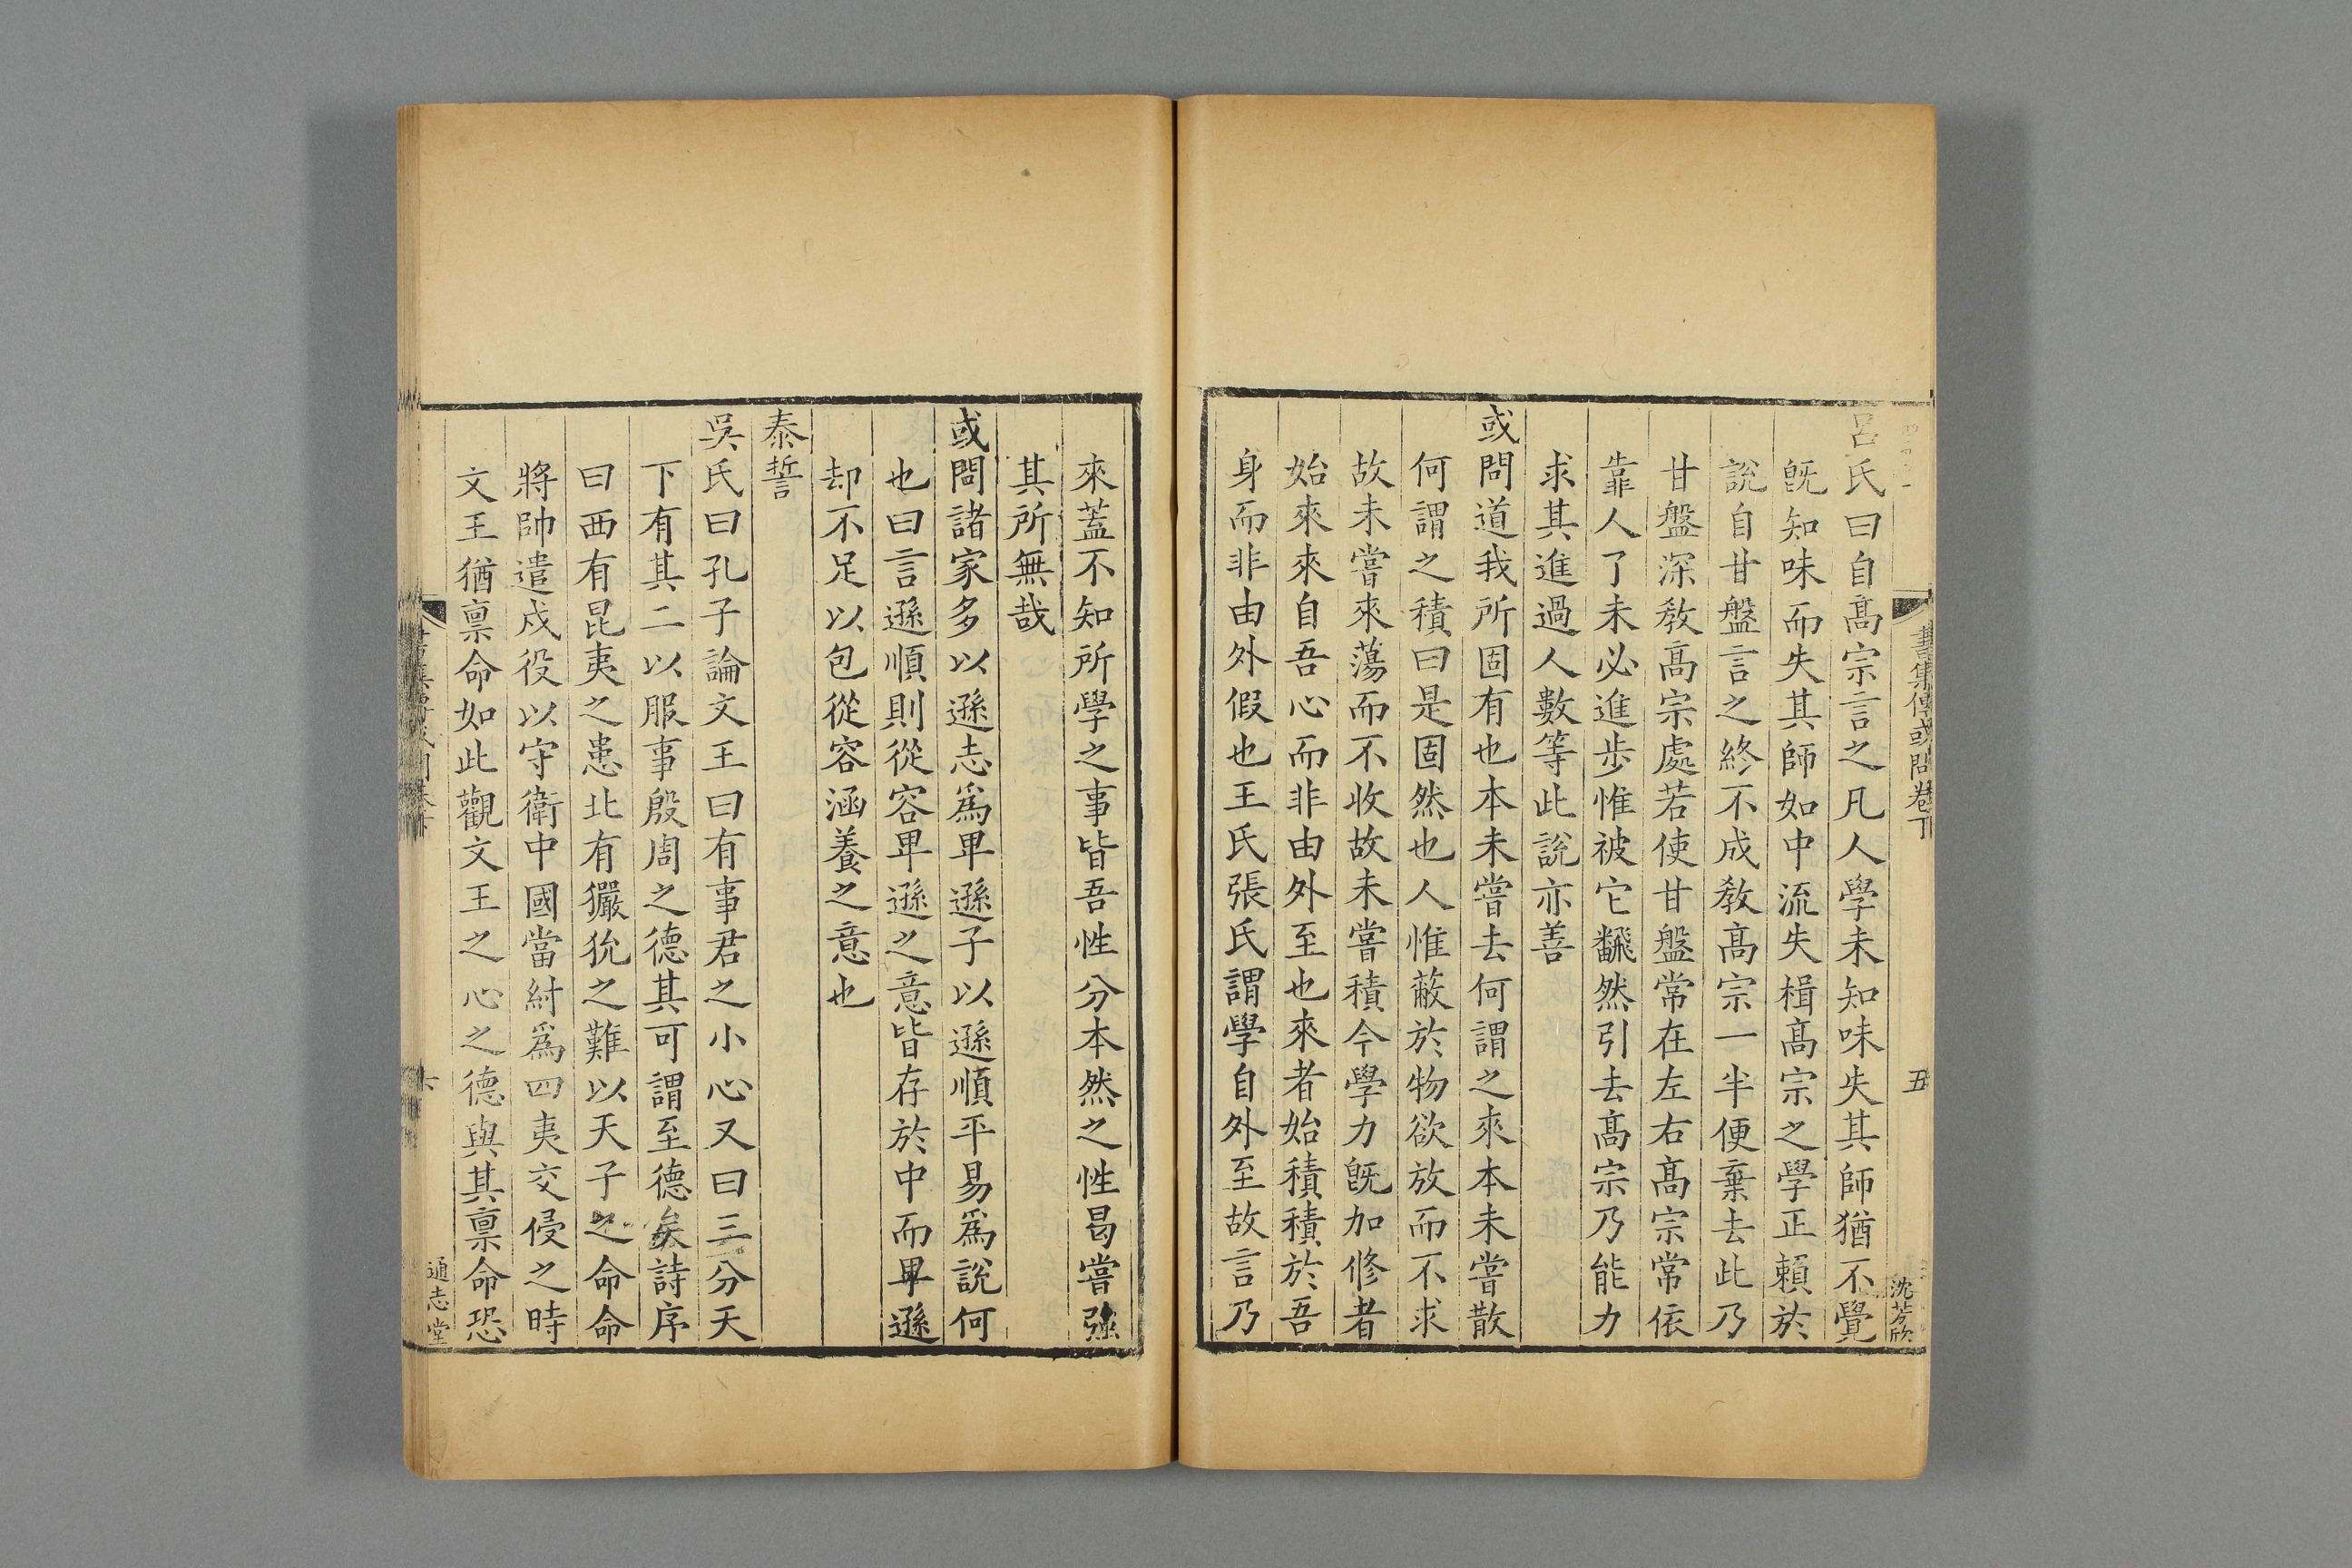 書集傳或問卷下
五
沈芳欣
呂氏曰自髙宗言之凡人學未知味失其師猶不覺
旣知味而失其師如中流失楫髙宗之學正賴於
說自甘盤言之終不成敎髙宗一半便棄去此乃
甘盤深敎髙宗處若使甘盤常在左右髙宗常依
靠人了未必進步惟被它飜然引去髙宗乃能力
求其進過人數等此說亦善
或問道我所固有也本未嘗去何謂之來本未嘗散
何謂之積曰是固然也人惟蔽於物欲放而不求
故未嘗來蕩而不收故未嘗積今學力旣加修者
始來來自吾心而非由外至也來者始積積於吾
身而非由外假也王氏張氏謂學自外至故言乃
來蓋不知所學之事皆吾性分本然之性曷嘗强
其所無哉
或問諸家多以遜志爲卑遜子以遜順平易爲說何
也曰言遜順則從容卑遜之意皆存於中而卑遜
却不足以包從容涵養之意也
泰誓
吳氏曰孔子論文王曰有事君之小心又曰三分天
下有其二以服事殷周之德其可謂至德矣詩序
曰西有昆夷之患北有玁狁之難以天子之命命
將帥遣戍役以守衛中國當紂爲四夷交侵之時
文王猶禀命如此觀文王之心之德與其禀命恐
六
通志堂